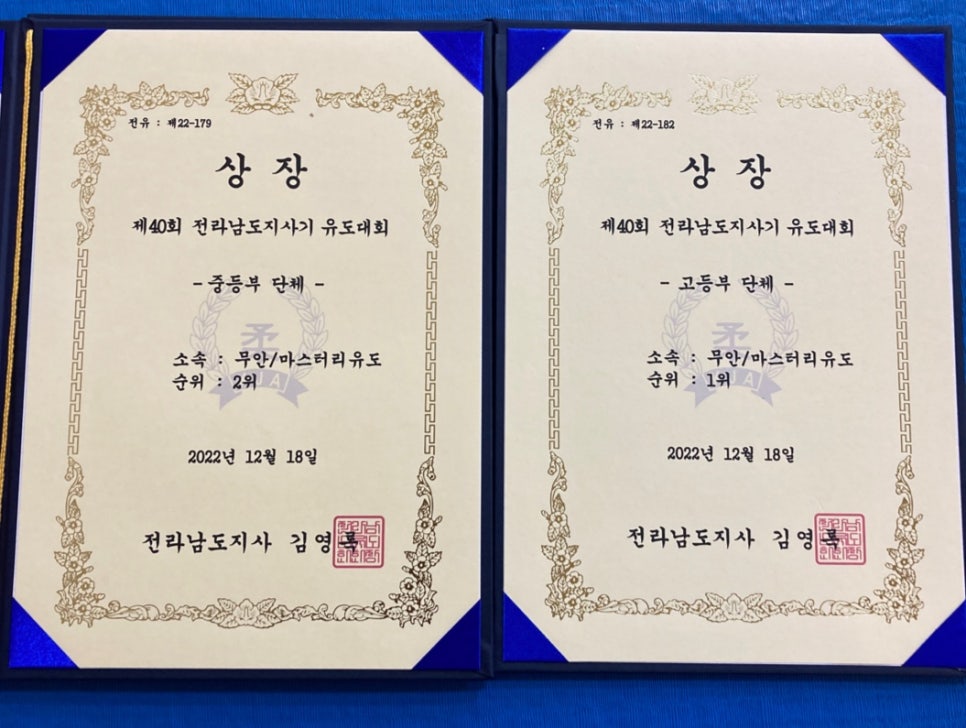 전유 : 제22-179
상 장
제40회 전라남도지사기 유도대회
- 중등부 단체 -
柔
소속 : 무안/마스터리유도
순위 : 2위
2022년 12월 18일
전라남도지사 김영록
전유 : 제22-182
상 장
제40회 전라남도지사기 유도대회
- 고등부 단체 -
柔
소속 : 무안/마스터리유도
순위 : 1위
2022년 12월 18일
전라남도지사 김영록